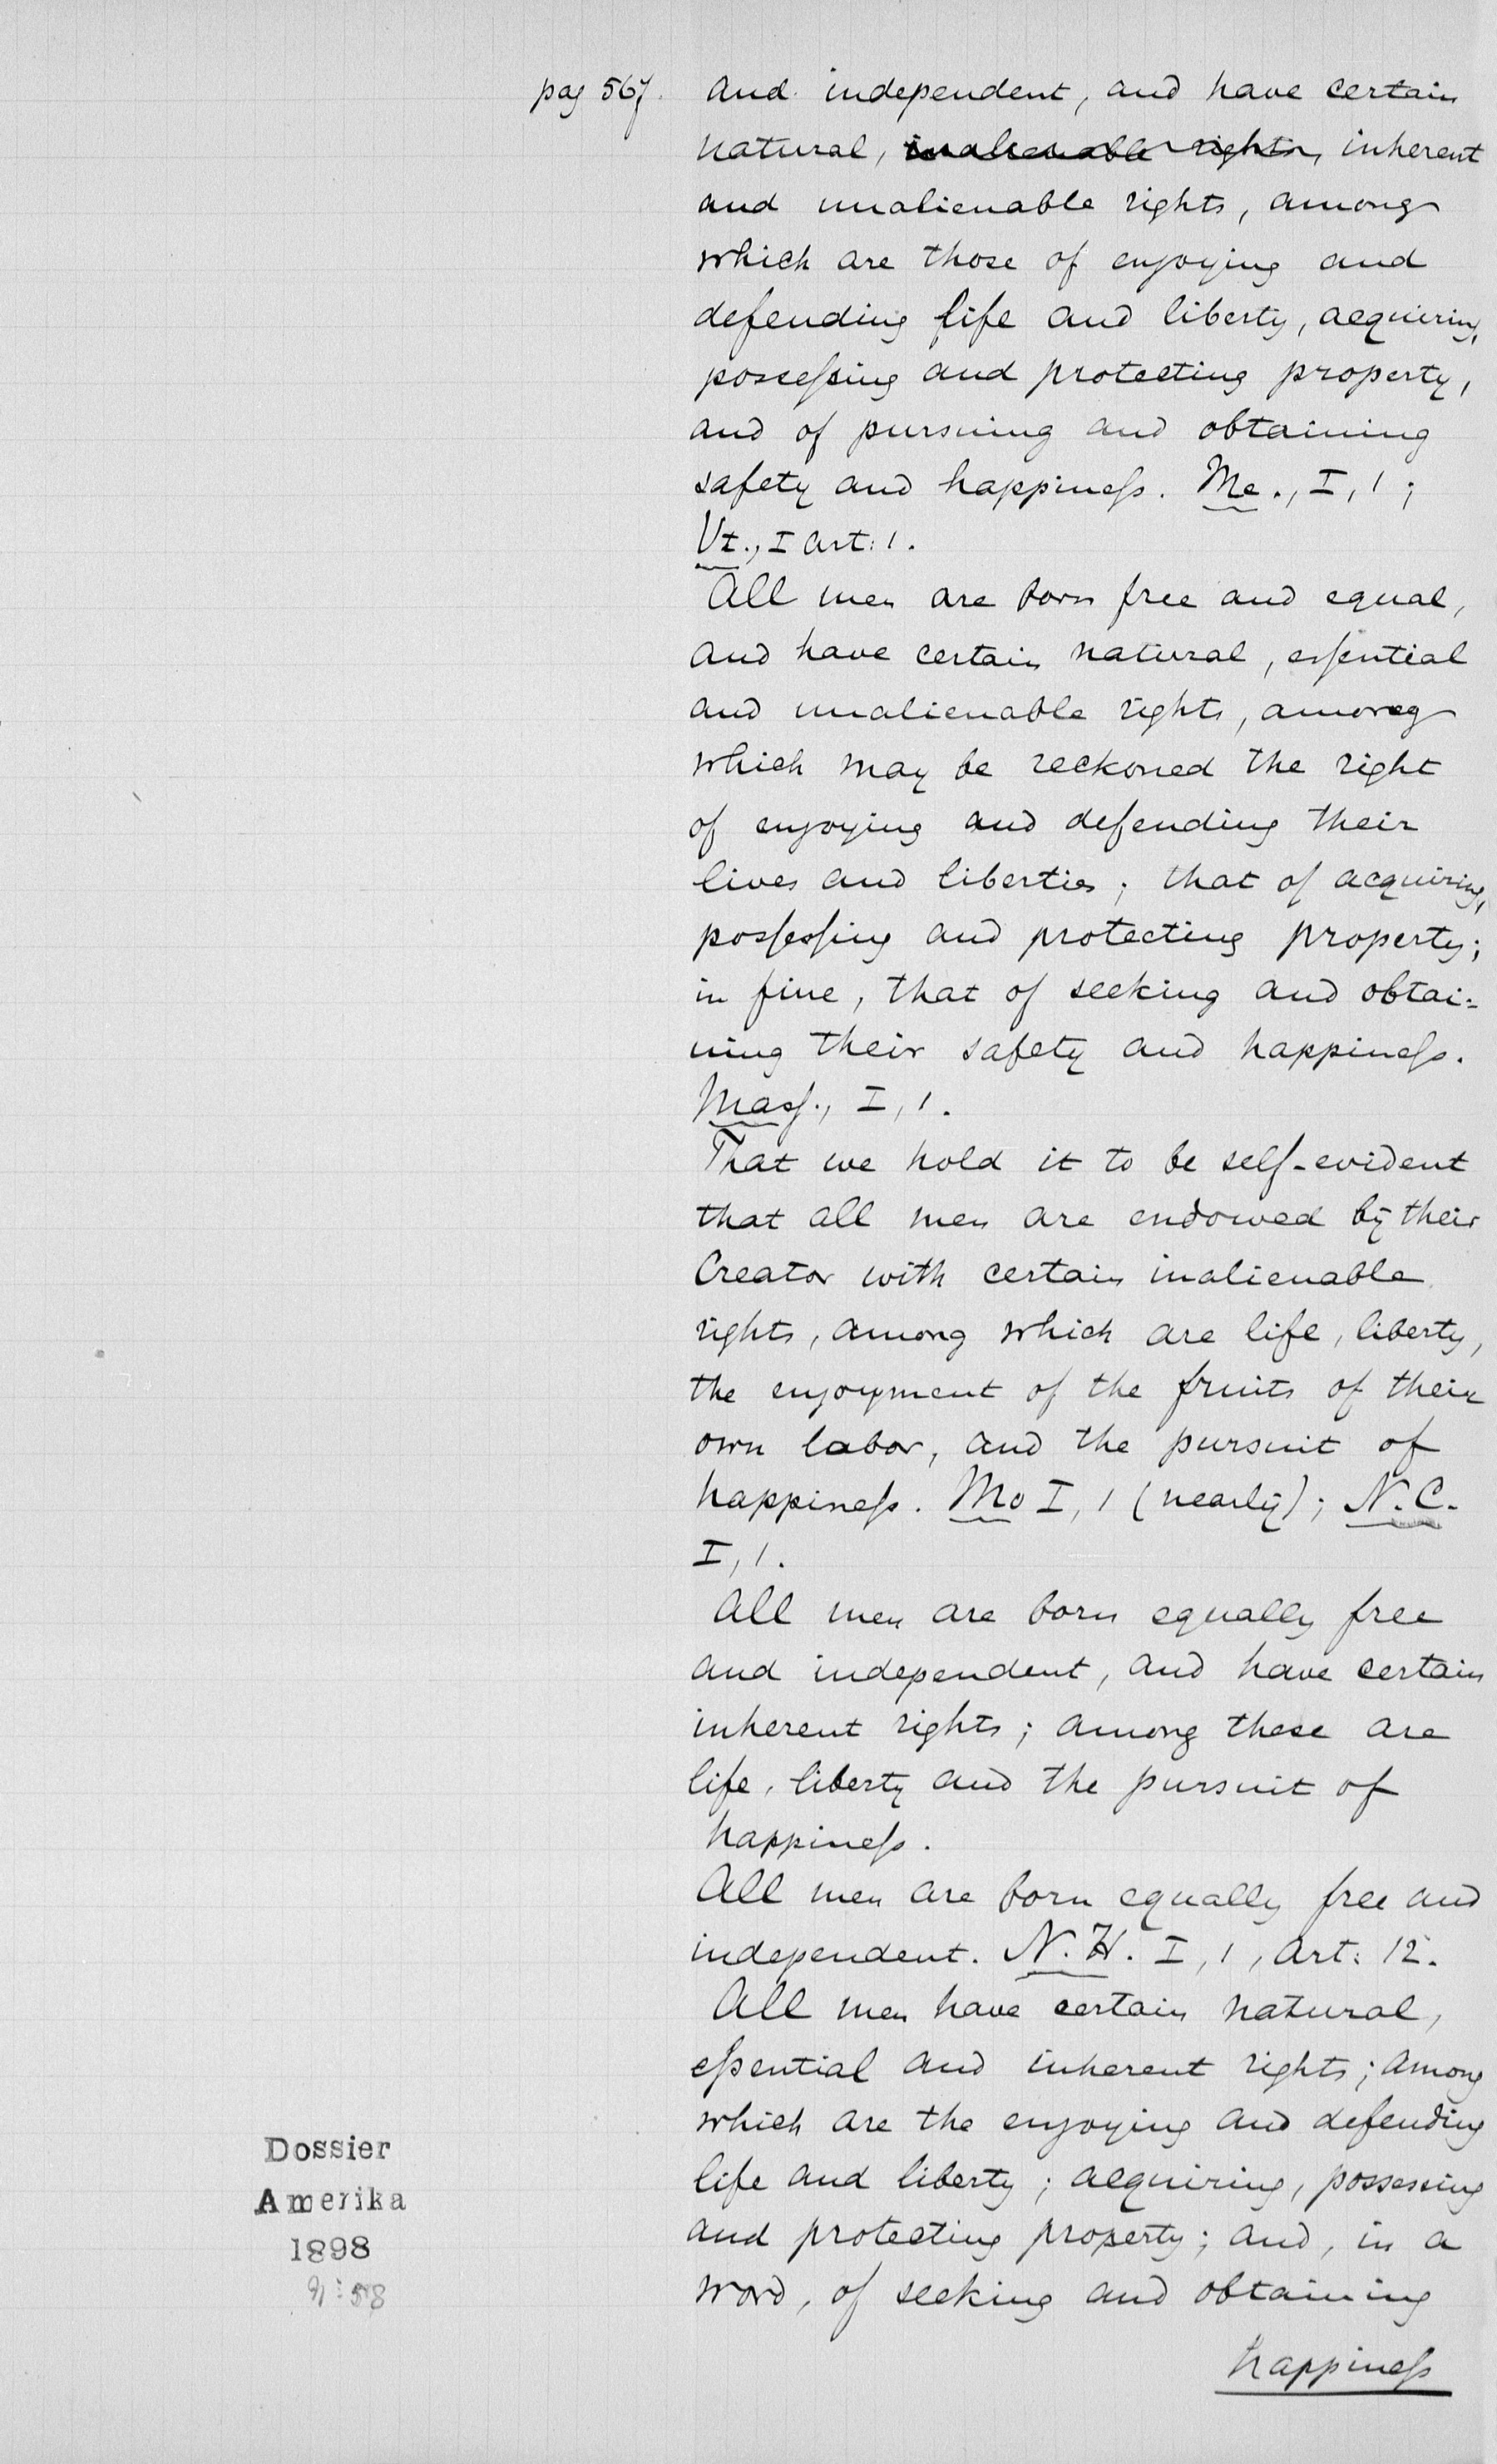 pag 567.
and independent, and have certain
natural, inalienable rights, inherent
and unalienable rights, among
which are those of enjoying and
defending life and liberty, acquiring,
possessing and protecting property,
and of pursuing and obtaining
safety and happiness. Me., I, 1;
Vt., I art: 1.
All men are born free and equal,
and have certain natural, essential
and unalienable rights, among
which may be reckoned the right
of enjoying and defending their
lives and liberties; that of acquiring,
possessing and protecting property;
in fine, that of seeking and obtai=
ning their safety and happiness.
Mass., I, 1.
That we hold it to be self-evident
that all men are endowed by their
Creator with certain inalienable
rights, among which are life, liberty,
the enjoyment of the fruits of their
own labor, and the pursuit of
happiness. Mo I, 1 (nearly); N.C.
I, 1.
All men are born equally free
and independent, and have certain
inherent rights; among these are
life, liberty and the pursuit of
happiness.
All men are born equally free and
independent. N.H. I, 1, Art: 12.
All men have certain natural,
essential and inherent rights; among
which are the enjoying and defending
life and liberty; acquiring, possessing
and protecting property; and, in a
word, of seeking and obtaining
happiness
Dossier
Amerika
1898